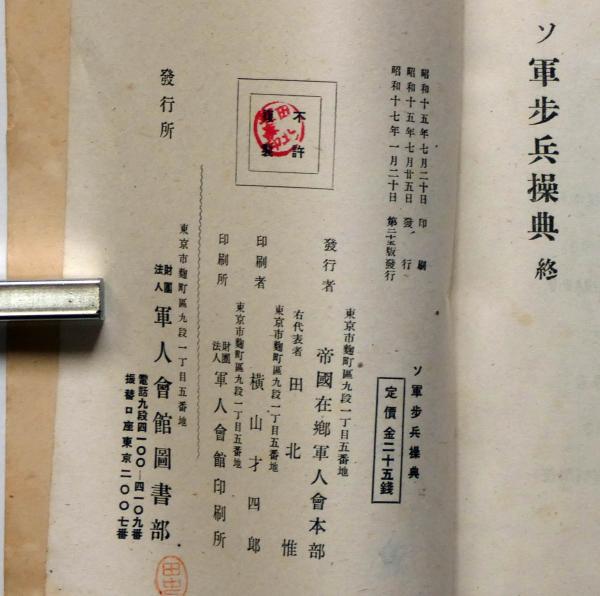 ソ軍步兵操典 終
ソ軍步兵操典
定價金二十五錢
昭和十五年七月二十日 印刷
昭和十五年七月廿五日 發行
昭和十七年一月二十日 版發行
不許複製
東京市麴町區九段一丁目五番地
發行者 帝國在鄕軍人會本部
右代表者 田北惟
東京市麴町區九段一丁目五番地
印刷者 橫山才四郎
東京市麴町區九段一丁目五番地
印刷所 財團法人 軍人會館印刷所
發行所
東京市麴町區九段一丁目五番地
財團法人 軍人會館圖書部
電話九段四一〇〇—四一〇九番
振替口座東京二〇〇七番